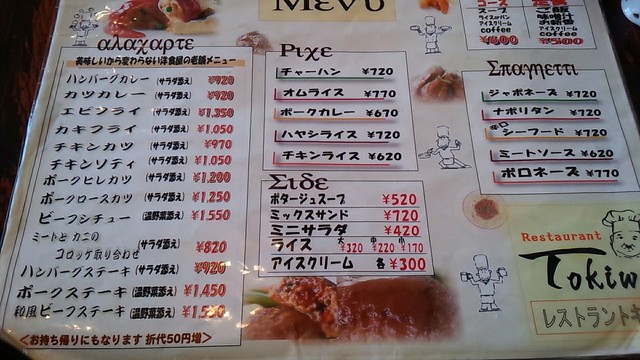 MENU
αλαχαρτε
美味しいから変わらない洋食屋の老舗メニュー
ハンバーグカレー (サラダ添え) ¥920
カツカレー (サラダ添え) ¥920
エビフライ (サラダ添え) ¥1,350
カキフライ (サラダ添え) ¥1,050
チキンカツ (サラダ添え) ¥970
チキンソティ (サラダ添え) ¥1,050
ポークヒレカツ (サラダ添え) ¥1,200
ポークロースカツ (サラダ添え) ¥1,250
ビーフシチュー (温野菜添え) ¥1,550
ミートと カニの
コロッケ取り合わせ (サラダ添え) ¥820
ハンバーグステーキ (サラダ添え) ¥920
ポークステーキ (温野菜添え) ¥1,450
和風ビーフステーキ (温野菜添え)
<お持ち帰りにもなります 折代50円増>
Ριχε
チャーハン ¥720
オムライス ¥770
ポークカレー ¥670
ハヤシライス ¥720
チキンライス ¥620
Σιδε
ポタージュスープ ¥520
ミックスサンド ¥720
ミニサラダ ¥420
ライス 大¥320 中¥220 小¥170
アイスクリーム 各¥300
ライスorパン
アイスクリーム
coffee
¥600
ご飯
味噌汁
お新香
アイスクリーム
coffee
¥500
Σπαγηεττι
ジャポネーズ ¥720
ナポリタン ¥720
シーフード ¥720
ミートソース ¥620
ボロネーズ ¥770
Restaurant
Tokiw
レストラントキ